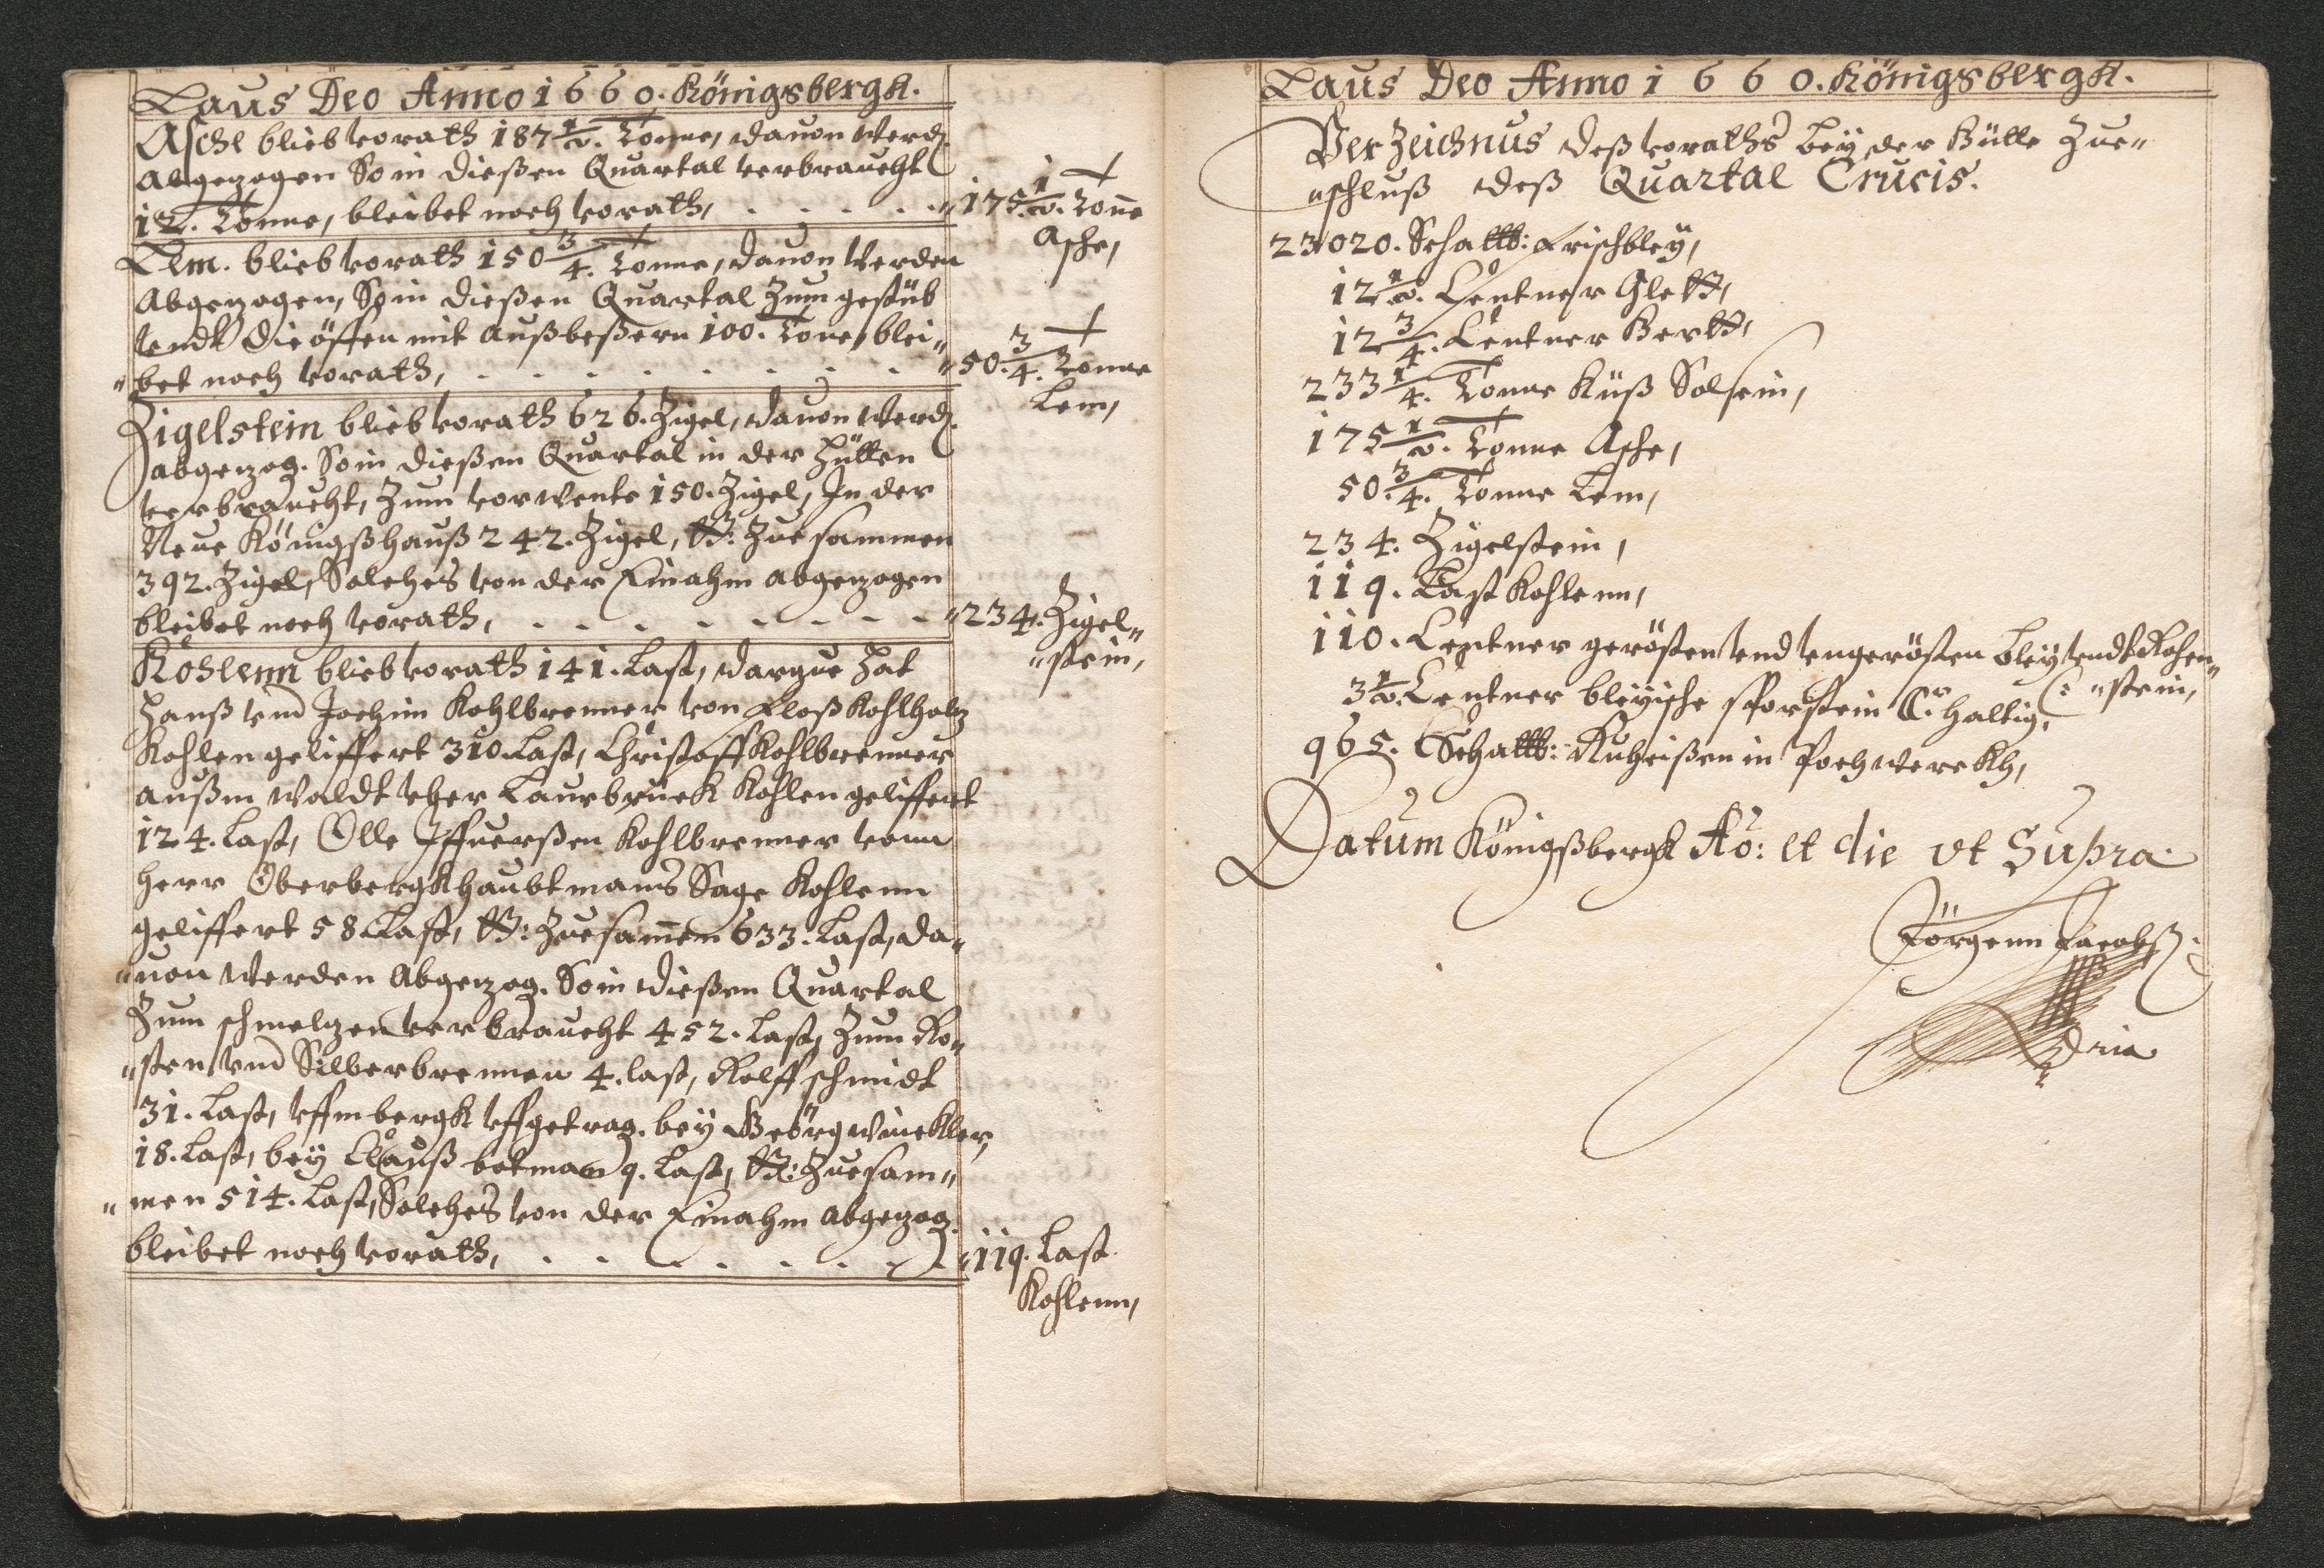 Laus Deo Anno 1660. Königsbergk.
Asche blieb vorath 187 1/2. Tonne, dauon werd.
abgezogen So in dießen Quartal verbraucht
12. Tonne, bleibet noch vorath, . . . . . "175 1/2. Toñe
Asche,
Lem. blieb vorath 150 3/4. Tonne, dauon werden
Abgezogen, So in dießen Quartal Zum gestüb
vndt die öffen mit außbeßern 100. Tone, blei"
"bet noch vorath, . . . . . . . . "50. 3/4. Tonne
Lem,
Zigelstein blieb vorath 626. Zigel, dauon werd.
abgezog. So in dießen Quartal in der Hütten
verbraucht, Zum vorwente 150. Zigel, In der
Neue Königßhauß 242. Zigel, Zue sammen
392. Zigel, Solches von der Einahm abgezogen
bleibet noch vorath, . . . . . . . . "234. Zigel"
"stein,
Kohlenn blieb vorath 141. Last, darzue hat
Hanß vnd Jochim Kohlbrenner von Floß Kohlholz
Kohlen geliffert 310. Last, Christoff Kohlbrenner
außm waldt vber Laurbruck Kohlen geliffert
124. Last, Olle Iffuerßen Kohlbrenner vonn
Herr Oberbergkhaubtmans Sage Kohlenn
geliffert 58 Last, Zuesam̃en 633. Last, da"
"uon werden Abgezog. So in dießen Quartal
Zum schmelzen verbraucht 452. Last, Zum Rö"
"sten vnd Silberbrennen 4. last, Rolff schmidt
31. Last, vffm bergk vffgetrag. bey Geörg winckler,
18. Last, bey Clauß botman 9. Last, Zuesam"
"men 514. Last, Solches von der Einahm abgezog.
bleibet noch vorath, . . . . . . . "119. Last
Kohlenn,
Laus Deo Anno 1660. Königsbergk.
Verzeichnus deß voraths bey der Hütte Zue"
"schluß deß Quartal Crucis.
23020. Schallb: Frischbley,
12 1/2. Centner Glett,
12 3/4. Centner Hertt,
233 1/4. Tonne Küß Solsein,
175 1/2. Tonne Asche,
50. 3/4. Tonne Lem,
234. Zigelstein,
119. Last Kohlenn,
110. Centner gerösten vnd vngerösten bley vndt Rohen"
"stein,
3 1/2. Centner bleyische haltig,
965. Schallb: Ruheißen in Pochwerckh,
Datum Königßbergk Aõ: et die vt Supra.
Jörgenn Jacobß.